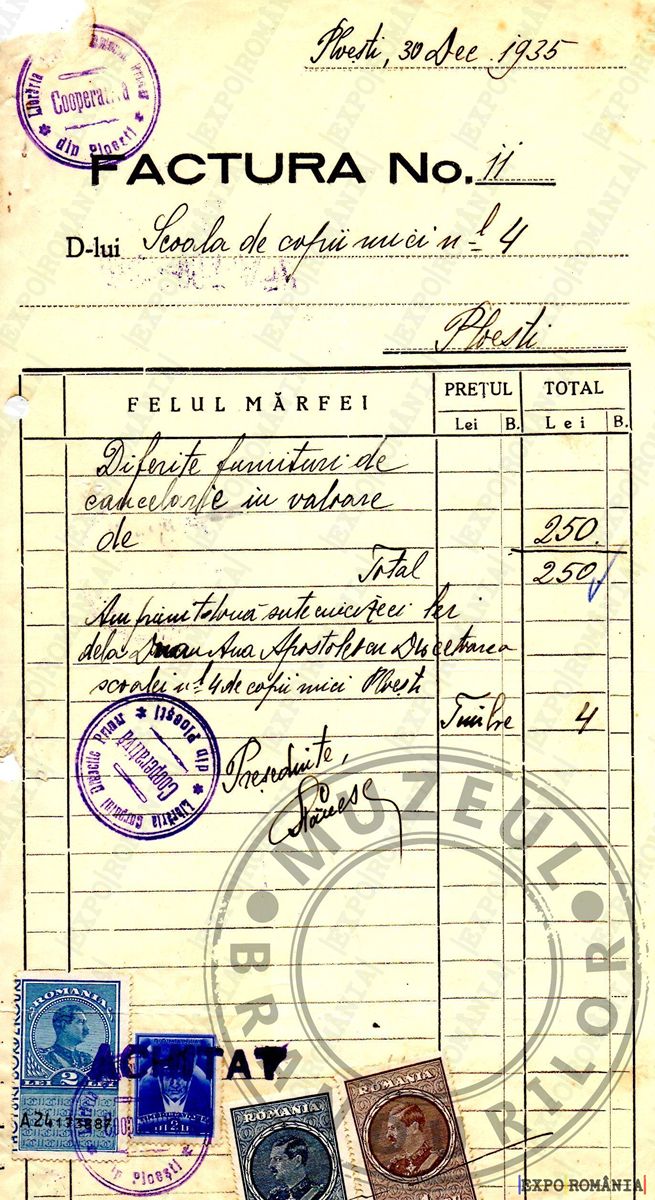 Ploești, 30 Dec. 1935
Librăria Corpului Didactic Primar
Cooperativa
din Ploești
FACTURA No. 11
D-lui Scoala de copii mici nl 4
Ploești
FELUL MĂRFEI PREȚUL TOTAL
Lei B. Lei B.
Diferite furnituri de
cancelarie in valoare
de 250.
Total 250
Am primit două sute cincizeci lei
dela Ana Apostolescu Directoarea
scoalei nl 4 de copii mici Ploești
Timbre 4
Librăria Corpului Didactic Primar
Cooperativa
din Ploești
Președinte,
MUZEUL
BRANDURILOR
ROMANIA
LEI 2 LEI
A24173887
ACHITAT
din Ploești
ROMANIA
ROMANIA
|EXPO|ROMÂNIA|